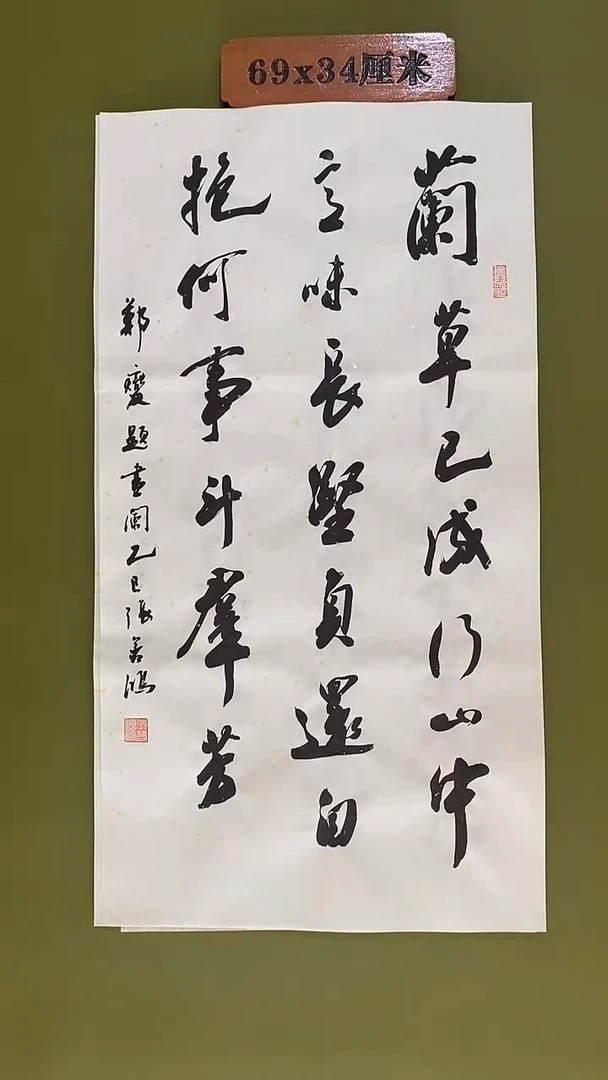 69x34厘米
蘭草已成行山中
意味長堅貞還自
抱何事斗羣芳
鄭燮題畫蘭乙巳張鴻